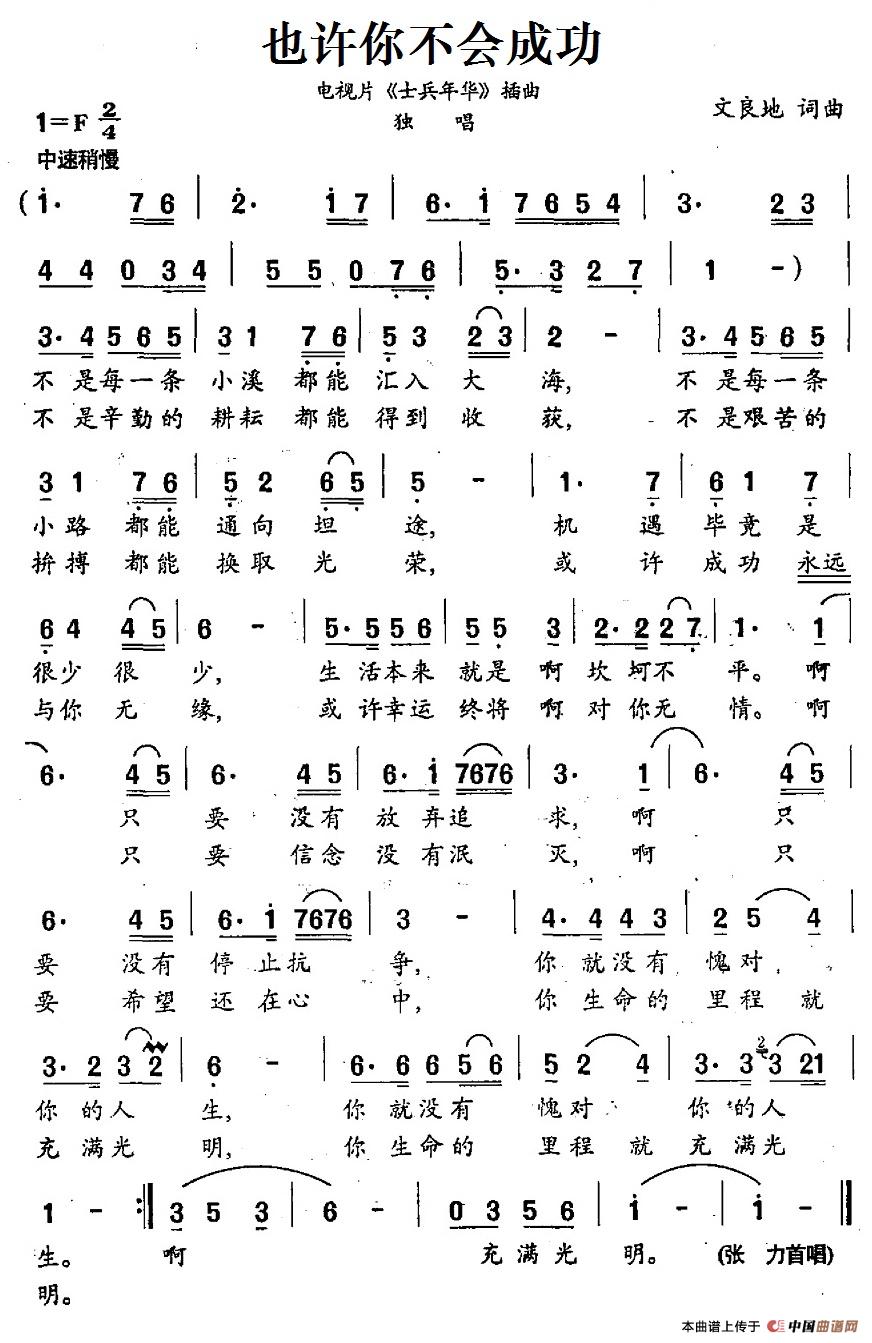 也许你不会成功
电视片《士兵年华》插曲
独 唱
文良地 词曲
1=F 2/4
中速稍慢
(i· 76 | 2· i7 | 6·i 7654 | 3· 23 |
44 034 | 55 076 | 5·3 27 | 1 -) |
3·4 565 | 31 76 | 53 23 | 2 - | 3·4 565 |
不是每一条 小溪都能 汇入大 海, 不是每一条
不是辛勤的 耕耘都能 得到收 获, 不是艰苦的
31 76 | 52 65 | 5 - | 1· 7 | 61 7 |
小路都能 通向坦 途, 机 遇 毕竟是
拚搏都能 换取光 荣, 或 许 成功永远
64 45 | 6 - | 5·5 56 | 55 3 | 2·2 27 | 1· 1 |
很少很 少, 生活本来 就是啊 坎坷不 平。 啊
与你无 缘, 或许幸运 终将啊 对你无 情。 啊
6· 45 | 6· 45 | 6·i 7676 | 3· 1 | 6· 45 |
只 要 没有 放弃追 求, 啊 只
只 要 信念 没有泯 灭, 啊 只
6· 45 | 6·i 7676 | 3 - | 4·4 43 | 25 4 |
要 没有 停止抗 争, 你就没有 愧对
要 希望 还在心 中, 你生命的 里程就
3·2 32 | 6 - | 6·6 656 | 52 4 | 3·3 2 321 |
你的人 生, 你就没有 愧对 你的人
充满光 明, 你生命的 里程就 充满光
1 - :| 35 3 | 6 - | 03 56 | i - | i - ||
生。 啊 充满光 明。 (张 力首唱)
明。
本曲谱上传于 中国曲谱网